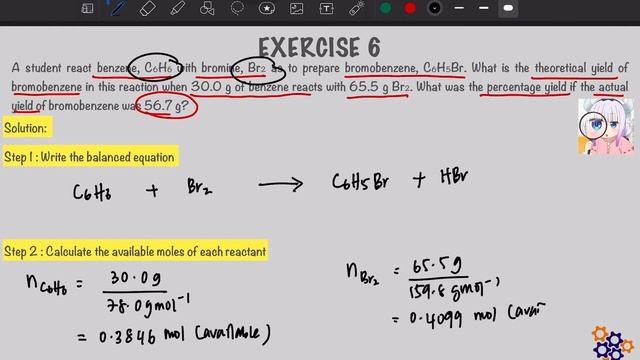 EXERCISE 6
A student react benzene, C6H6 with bromine, Br2 as to prepare bromobenzene, C6H5Br. What is the theoretical yield of
bromobenzene in this reaction when 30.0 g of benzene reacts with 65.5 g Br2. What was the percentage yield if the actual
yield of bromobenzene was 56.7 g?
Solution:
Step 1 : Write the balanced equation
C6H6 + Br2 → C6H5Br + HBr
Step 2 : Calculate the available moles of each reactant
nC6H6 = 30.0g / 78.0gmol-1
= 0.3846 mol (available)
nBr2 = 65.5g / 159.8gmol-1
= 0.4099 mol (avai